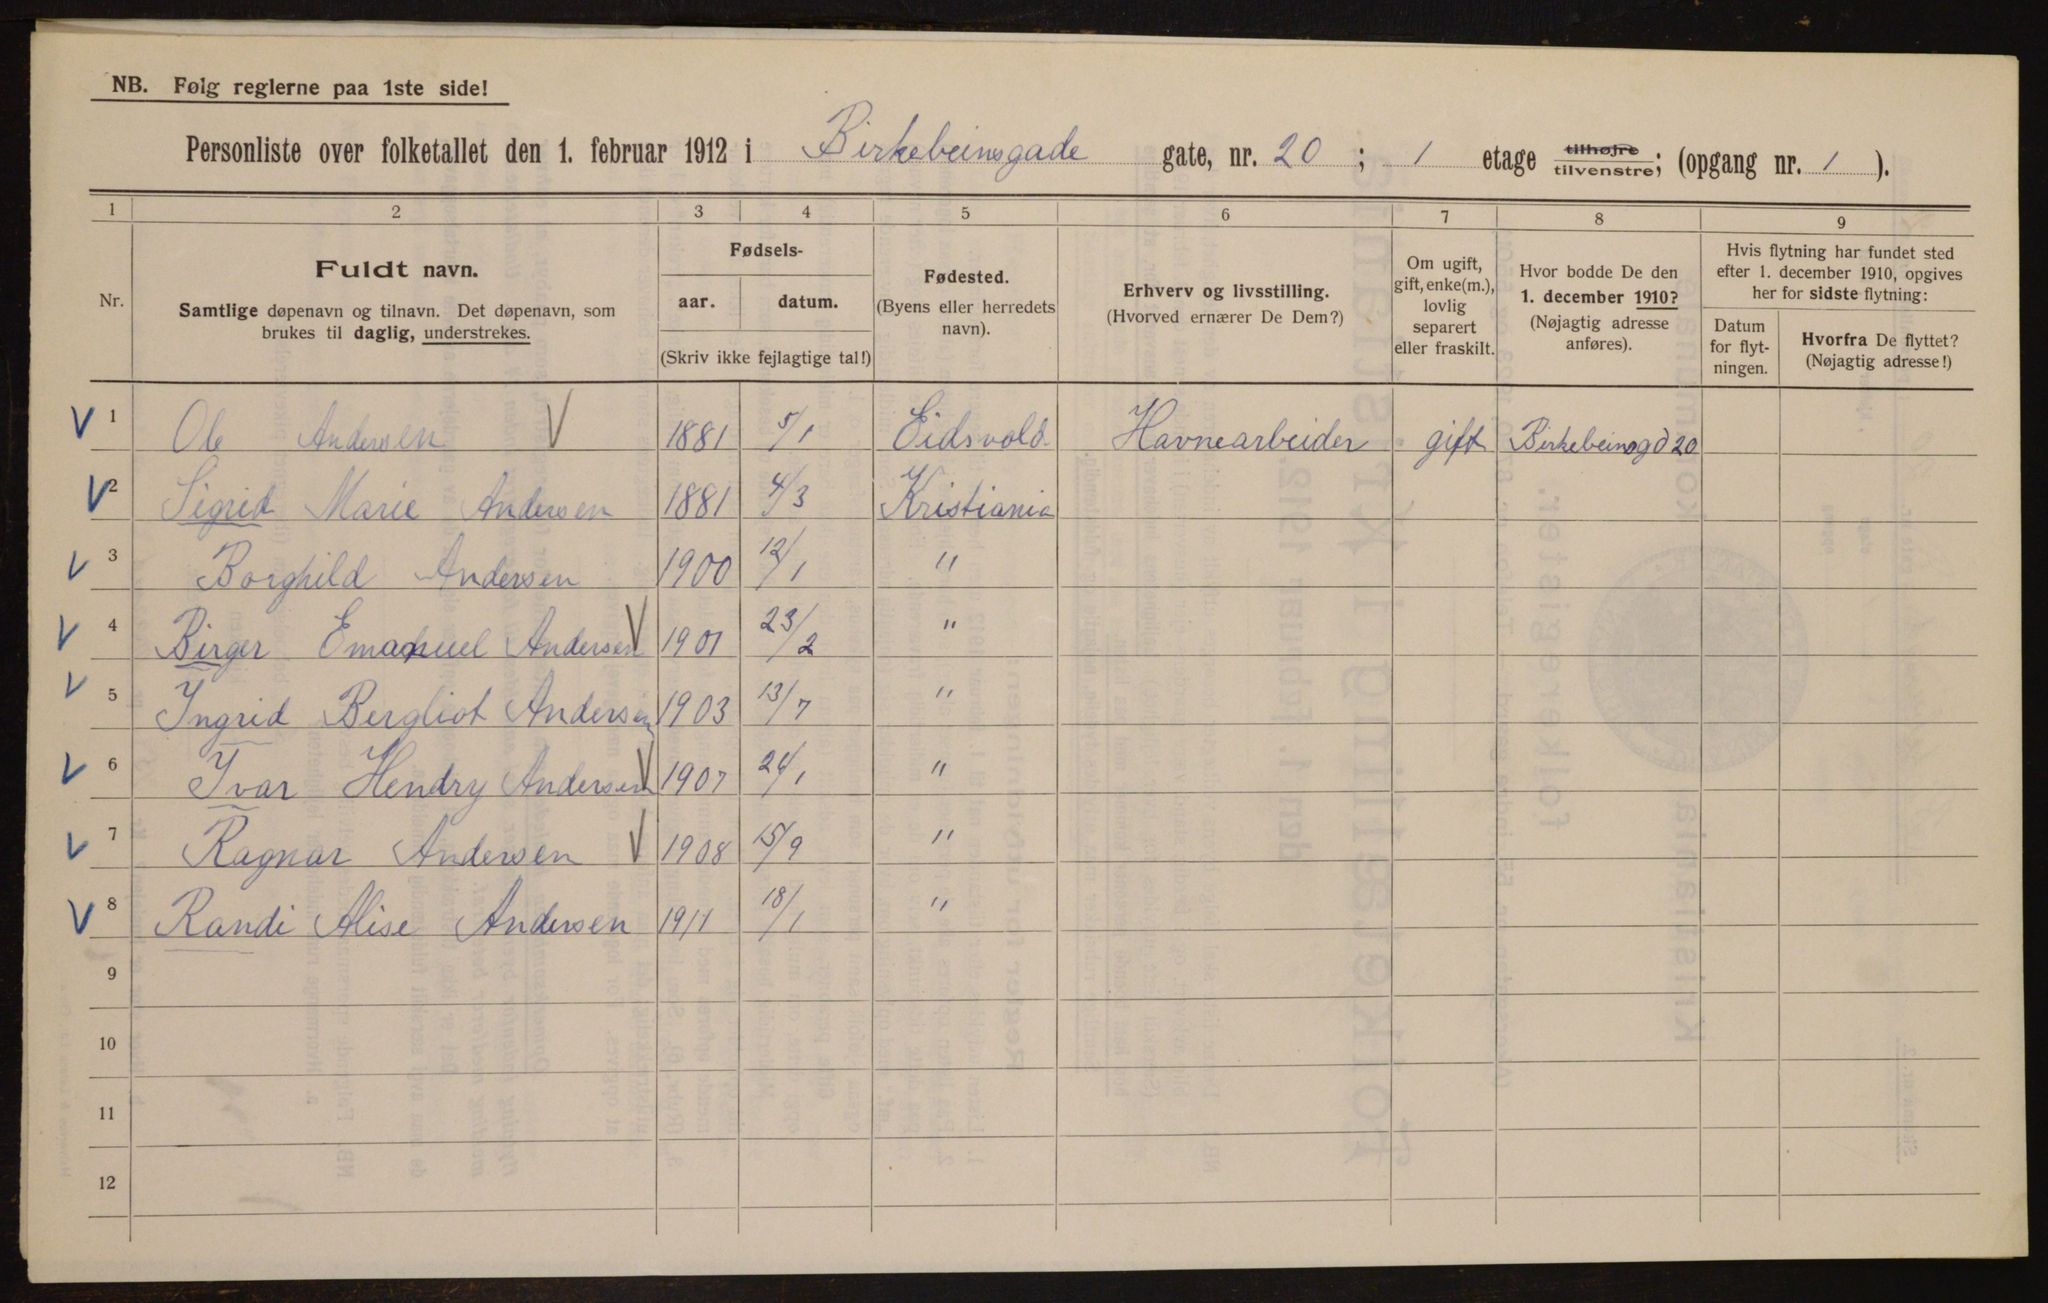 NB. Følg reglerne paa 1ste side!
Personliste over folketallet den 1. februar 1912 i Birkebeinsgade gate, nr. 20 ; 1 etage tilhøjre tilvenstre; (opgang nr. 1 ).
1 2 3 4 5 6 7 8 9
Nr.
Fuldt navn.
Samtlige døpenavn og tilnavn. Det døpenavn, som
brukes til daglig, understrekes.
Fødsels-
aar. datum.
(Skriv ikke fejlagtige tal!)
Fødested.
(Byens eller herredets
navn).
Erhverv og livsstilling.
(Hvorved ernærer De Dem?)
Om ugift,
gift, enke(m.),
lovlig
separert
eller fraskilt.
Hvor bodde De den
1. december 1910?
(Nøjagtig adresse
anføres).
Hvis flytning har fundet sted
efter 1. december 1910, opgives
her for sidste flytning:
Datum
for flyt-
ningen.
Hvorfra De flyttet?
(Nøjagtig adresse!)
V 1 Ole Andersen V 1881 5/1 Eidsvold Havnearbeider gift Birkebeinsgd 20
V 2 Sigrid Marie Andersen 1881 4/3 Kristiania
V 3 Borghild Andersen 1900 12/1 "
V 4 Birger Emanuel Andersen V 1901 23/2 "
V 5 Ingrid Bergliot Andersen 1903 13/7 "
V 6 Ivar Hendry Andersen V 1907 /1 "
V 7 Ragnar Andersen V 1908 15/9 "
V 8 Randi Alise Andersen 1911 18/1 "
9
10
11
12